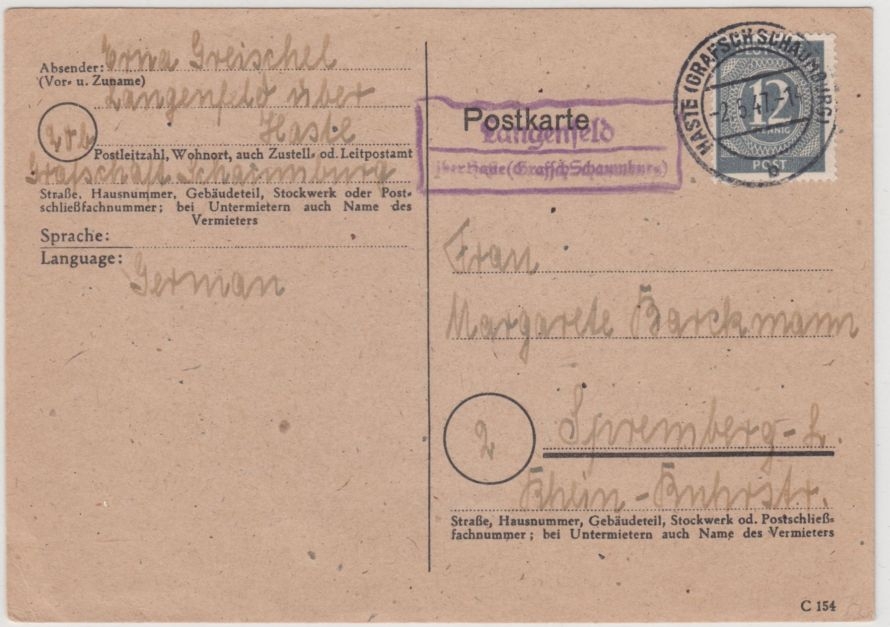 Absender: Erna Greischel
(Vor- u. Zuname)
Langenfeld über
Haste
Postleitzahl, Wohnort, auch Zustell. od. Leitpostamt
Grafschaft Schaumburg
Straße, Hausnummer, Gebäudeteil, Stockwerk oder Post-
schließfachnummer; bei Untermietern auch Name des
Vermieters
Sprache:
Language: German
Postkarte
Langenfeld
über Haste (Graffsch Schaumburg)
HASTE (GRAFSCH SCHAUMBURG)
-2.5.47.-1
b
12
PFENNIG
POST
Frau
Margarete Barckmann
2
Spremberg-L.
Rhein-Ruhrstr.
Straße, Hausnummer, Gebäudeteil, Stockwerk od. Postschließ-
fachnummer; bei Untermietern auch Name des Vermieters
C 154